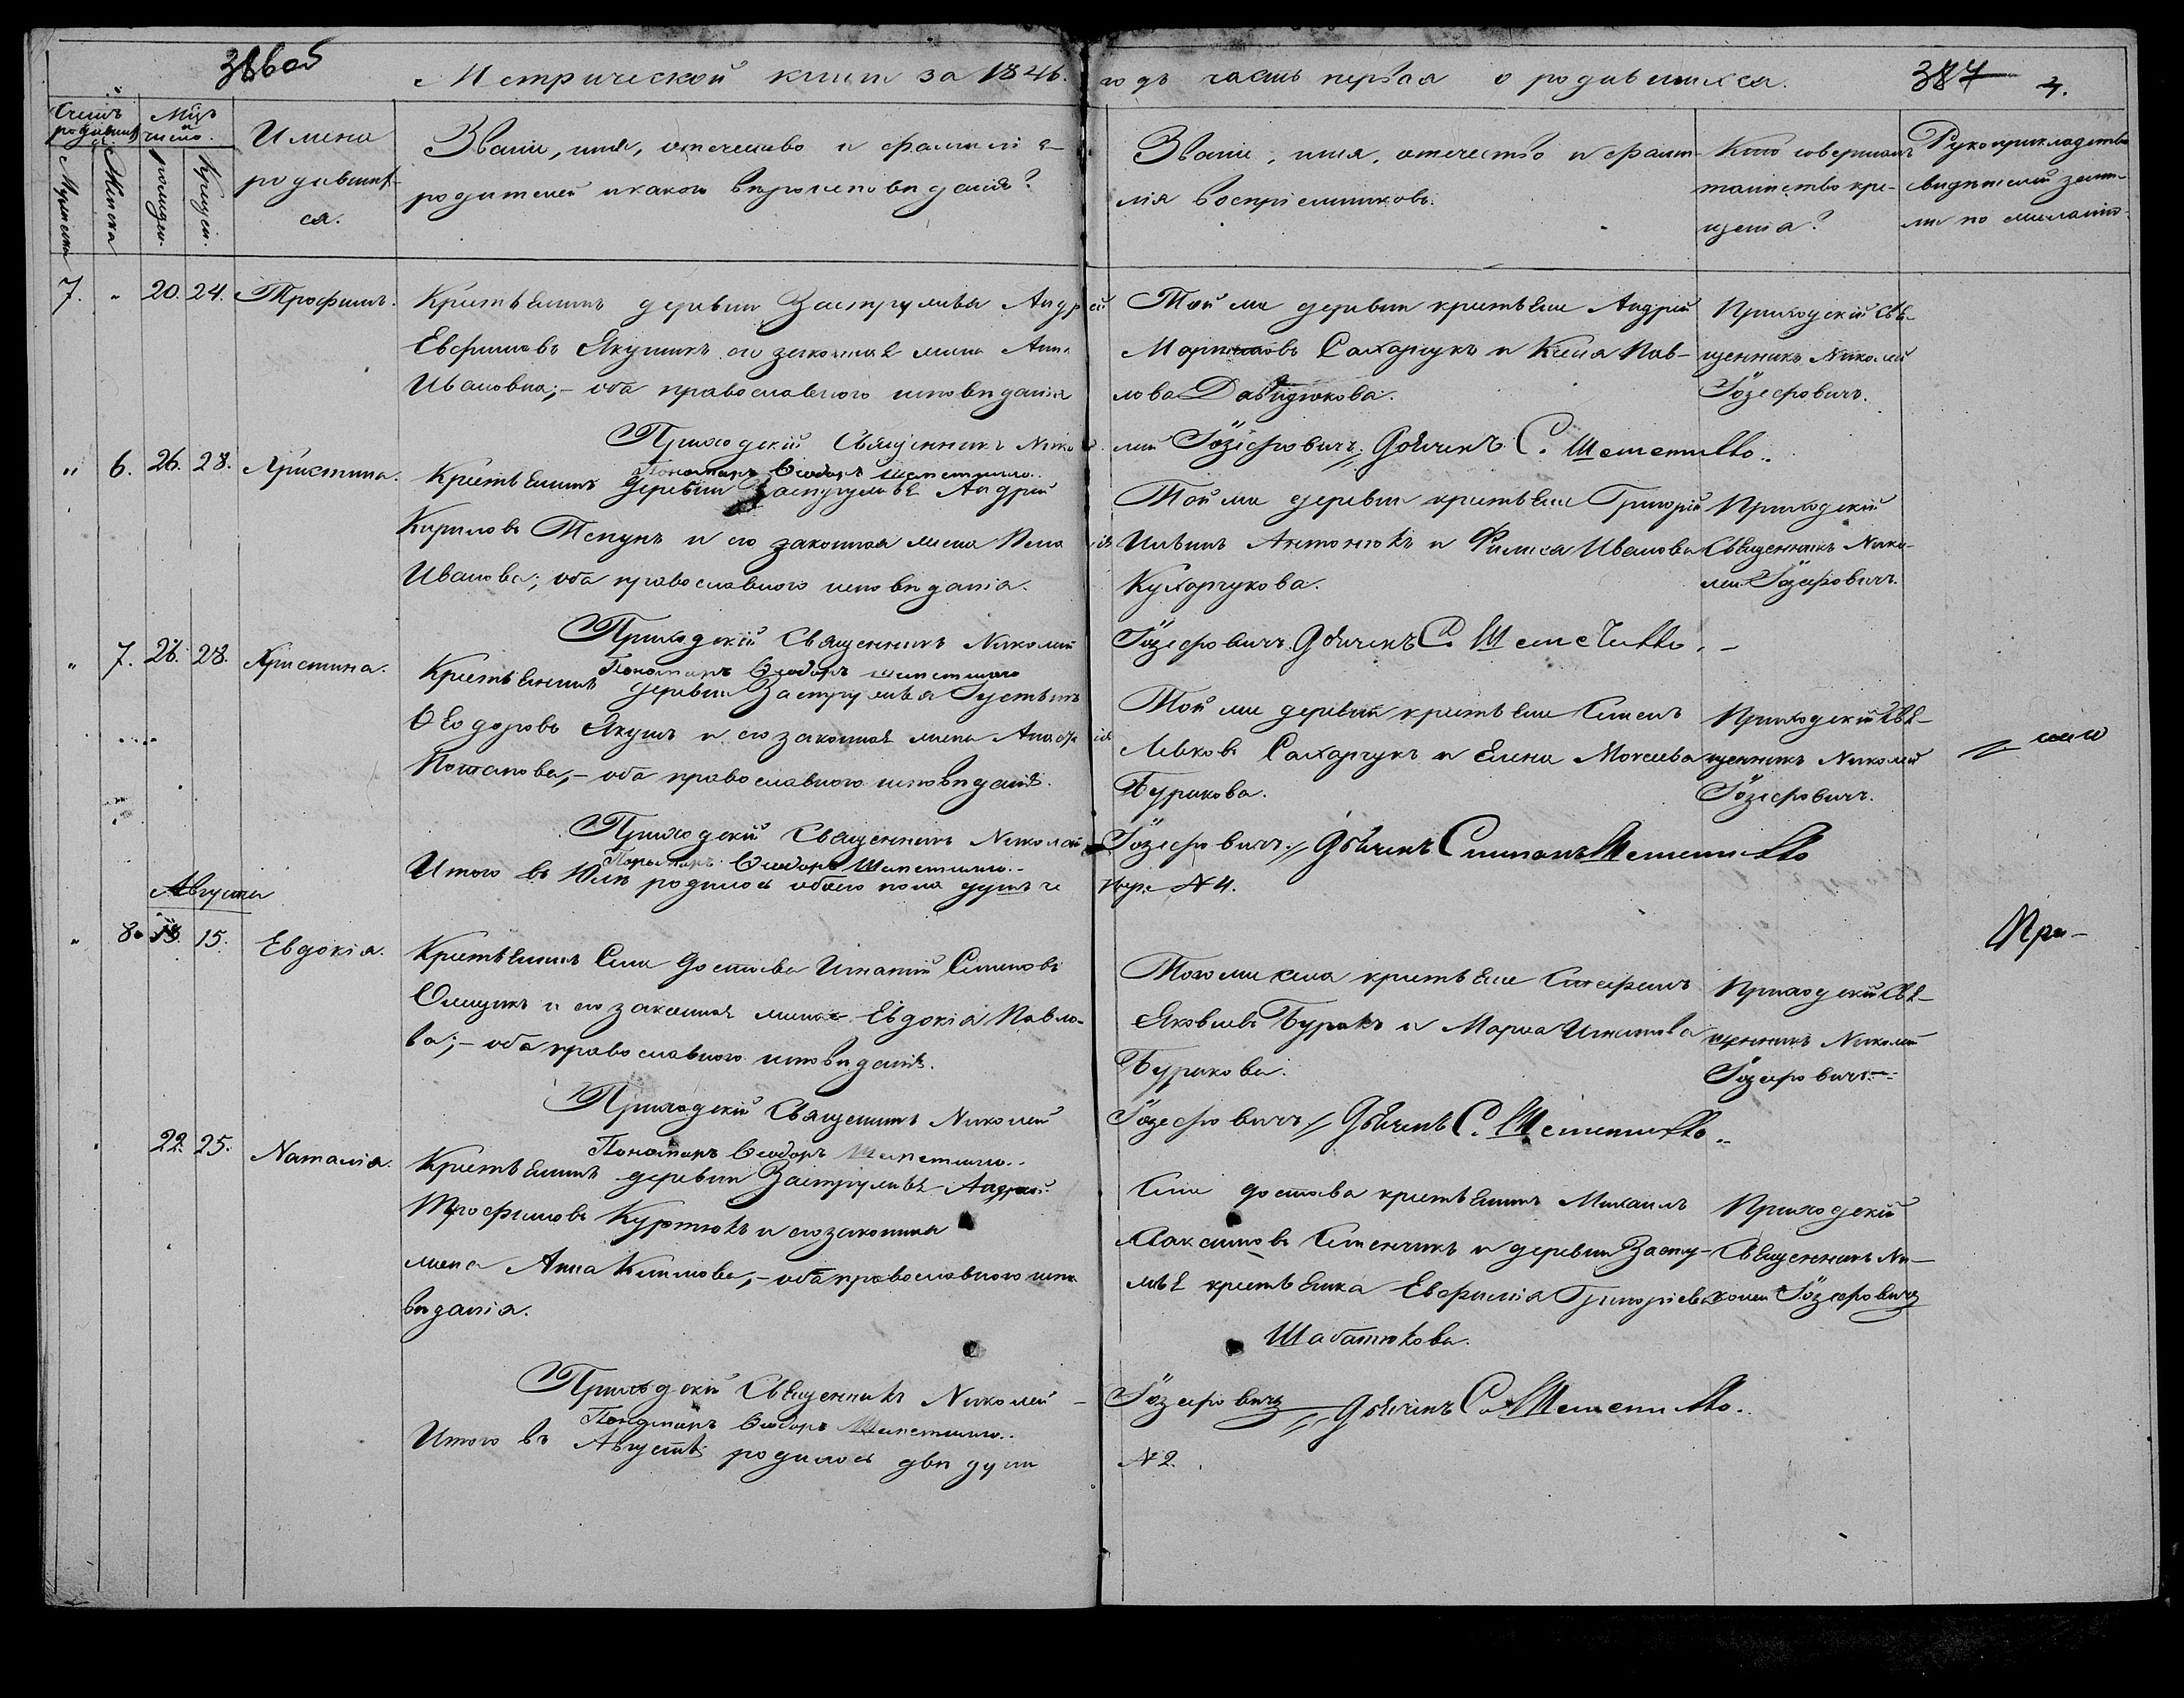 386об
Метрической книги за 1846. годъ часть первая о родившихся. 387 7.
Счетъ родивших Мцъ и число.
Мужеска Женска рожден. Крещен.
Имена родившихся.
Званіе, имя, отечество и фамилія
родителей и какого вѣроисповѣданія?
Званіе, имя, отечество и фами-
лія воспріемниковъ.
Кто совершалъ
таинство кре-
щенія?
Рукоприкладство
свидѣтелей запи-
си по желанію.
7. " 20. 24. Трофимъ.
Крестьянинъ деревни Заструмья Андрей
Евфимовъ Якушикъ его законная жена Анна
Иванова;- оба православного исповѣданія
Той же деревни крестьяне Андрей
Мартиновъ Сахарчукъ и Ксенія Пав-
лова Давидюкова.
Приходскій Свя-
щенникъ Николай
Іозефовичъ.
Приходскій Священникъ Николай Іозефовичъ. Дьячекъ С. Шеметилло..
Пономарь Ѳеодоръ Шеметилло..
" 6. 26. 28. Христина.
Крестьянинъ деревни Заструмья Андрей
Кириловъ Тепунъ и его законная жена Пелагія
Иванова; оба православного исповѣданія.
Той же деревни крестьяне Григорій
Ильинъ Антонюкъ и Фимія Иванова
Кухарчукова.
Приходскій
Священникъ Нико-
лай Іозефовичъ.
Приходскій Священникъ Николай Іозефовичъ. Дьячекъ С. Шеметилло.
Пономарь Ѳеодоръ Шеметилло
" 7. 26. 28. Христина.
Крестьянинъ деревни Заструмья Іустинъ
Ѳеодоровъ Якушъ и его законная жена Анастасія
Потапова,- оба православного исповѣданія.
Той же деревни крестьяне Семенъ
Левковъ Сахарчукъ и Елена Моисеева
Буракова.
Приходскій Свя-
щенникъ Николай
Іозефовичъ.
Приходскій Священникъ Николай Іозефовичъ. Дьячекъ Симонъ Шеметилло
Пономарь Ѳеодоръ Шеметилло..
Итого въ Юлѣ родилось обоего пола душъ четыре №4.
Августа
" 8. 13. 15. Евдокія.
Крестьянинъ Села Достоева Игнатій Семеновъ
Олещикъ и его законная жена Евдокія Павло-
ва;- оба православного исповѣданія.
Того же села крестьяне Стефанъ
Яковлевъ Буракъ и Марья Игнатьева
Буракова.
Приходскій Свя-
щенникъ Николай
Іозефовичъ.
При-
Приходскій Священникъ Николай Іозефовичъ Дьячекъ С. Шеметилло..
Пономарь Ѳеодоръ Шеметилло..
22. 25. Наталія.
Крестьянинъ деревни Заструмья Андрей
Трофимовъ Куртюкъ и его законная
жена Анна Климова,- оба православного испо
вѣданія.
Села Достоева крестьянинъ Михаилъ
Максимовъ Семенчикъ и деревни Застру-
мья крестьянка Евфимія Григоріева
Шабатюкова.
Приходскій
Священникъ Ни-
колай Іозефовичъ
Приходскій Священникъ Николай Іозефовичъ Дьячекъ С. Шеметилло.
Пономарь Ѳеодоръ Шеметилло..
Итого въ Августѣ родилось двѣ души №2.